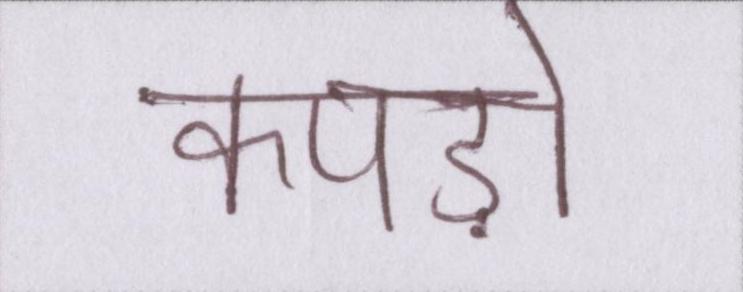 कपड़ो